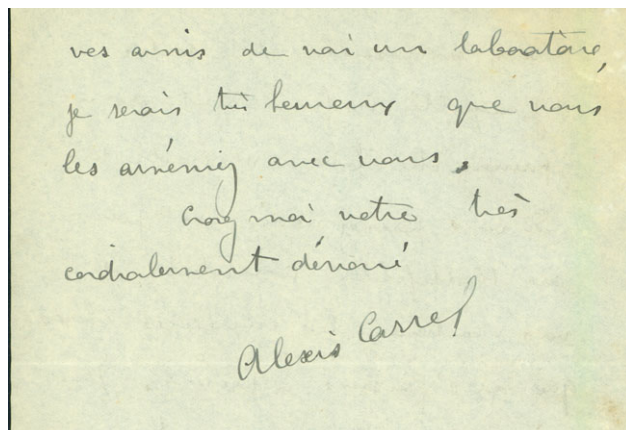 vos amis de voir un laboratoire,
je serais très heureux que vous
les ameniez avec vous.
Croyez moi votre très
cordialement dévoué
Alexis Carrel